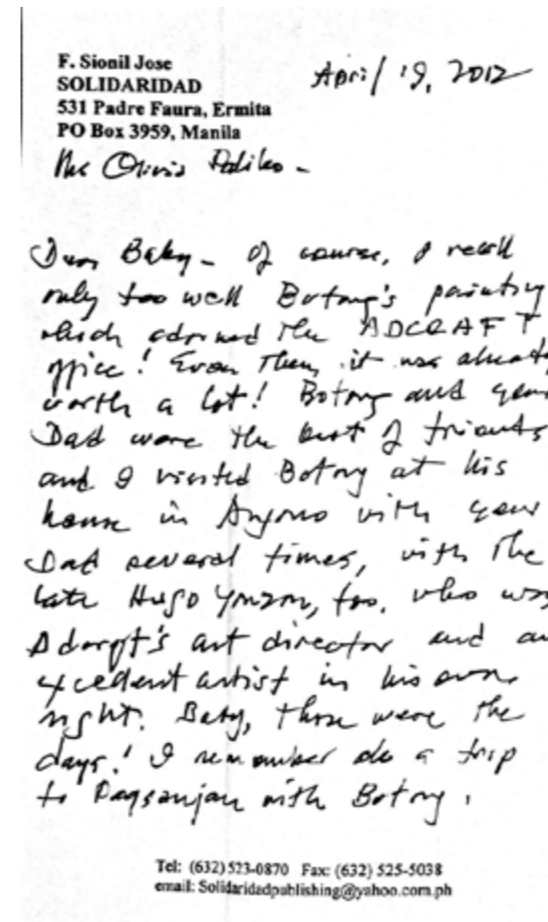 F. Sionil Jose
SOLIDARIDAD
531 Padre Faura, Ermita
PO Box 3959, Manila
April 19, 2012
Ms Olivia
Dear Baby - Of course, I recall
only too well Botong's painting
which adorned the ADCRAFT
office! Even then, it was already
worth a lot! Botong and your
Dad were the best of friends
and I visited Botong at his
house in Angono with your
Dad several times, with the
late Hugo Yonzon, too, who was
Adcraft's art director and an
excellent artist in his own
right. Baby, those were the
days! I remember do a trip
to Pagsanjan with Botong.
Tel: (632) 523-0870 Fax: (632) 525-5038
email: Solidaridadpublishing@yahoo.com.ph